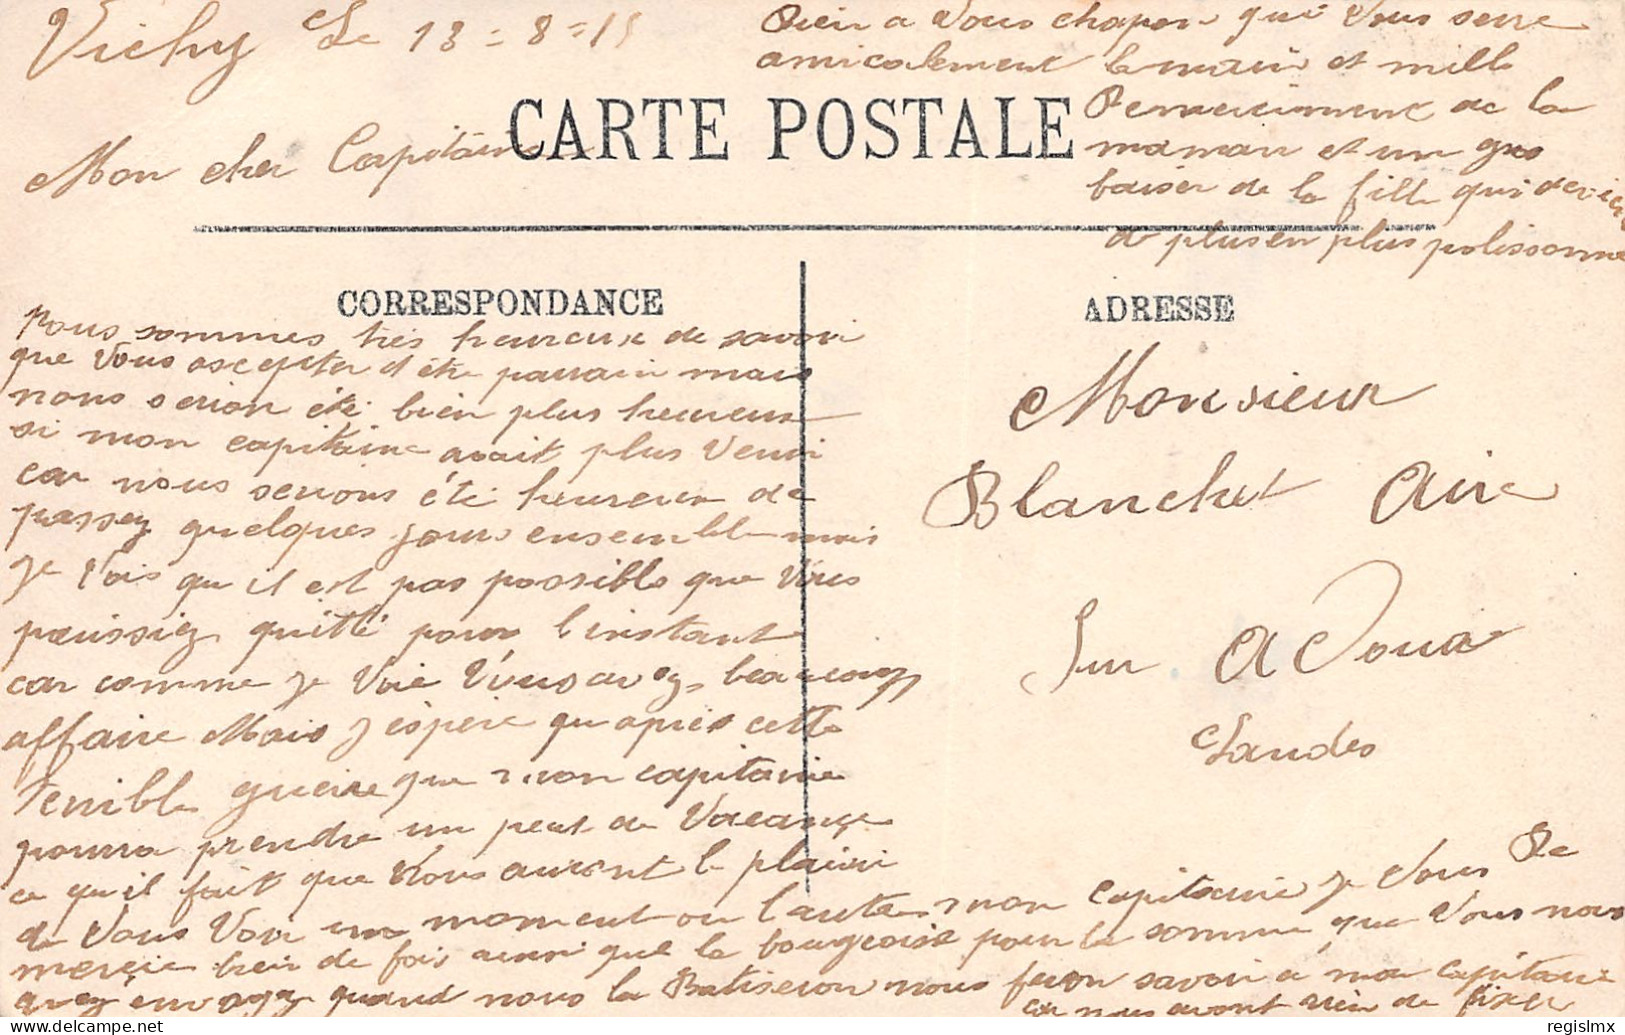 Vichy Le 13 = 8 = 15
Mon cher Capitaine
CARTE POSTALE
CORRESPONDANCE
Nous sommes très heureux de savoir
que Vous ascepter d'être parrain mais
nous serion été bien plus heureux
si mon capitaine avait plus Venir
car nous serions été heureux de
passez quelques jours ensemble mais
je Vois qu il est pas possible que Vous
puissiez quitté pour l instant
car comme je Voie Vous avez beaucoup
affaire Mais j espère qu après cette
Terrible guerre que mon capitaine
pourra prendre un peut de Vacance
ce qu il fait que Nous auront le plaisir
de Vous Voir un moment ou l autre mon capitaine je Vous Re
merçie bien de fois ainsi que la bourgeoise pour la somme que Vous nous
avez envoyez quand nous la Batiseron nous feron savoir a mon capitaine
car nous avont rien de fixer
Rien a Vous chapon qui Vous serre
amicalement la main et mille
Remerciement de la
maman et un gros
baiser de la fille qui devient
de plus en plus polissonne
ADRESSE
Monsieur
Blanchet Aire
Sur Adour
Landes
regislmx